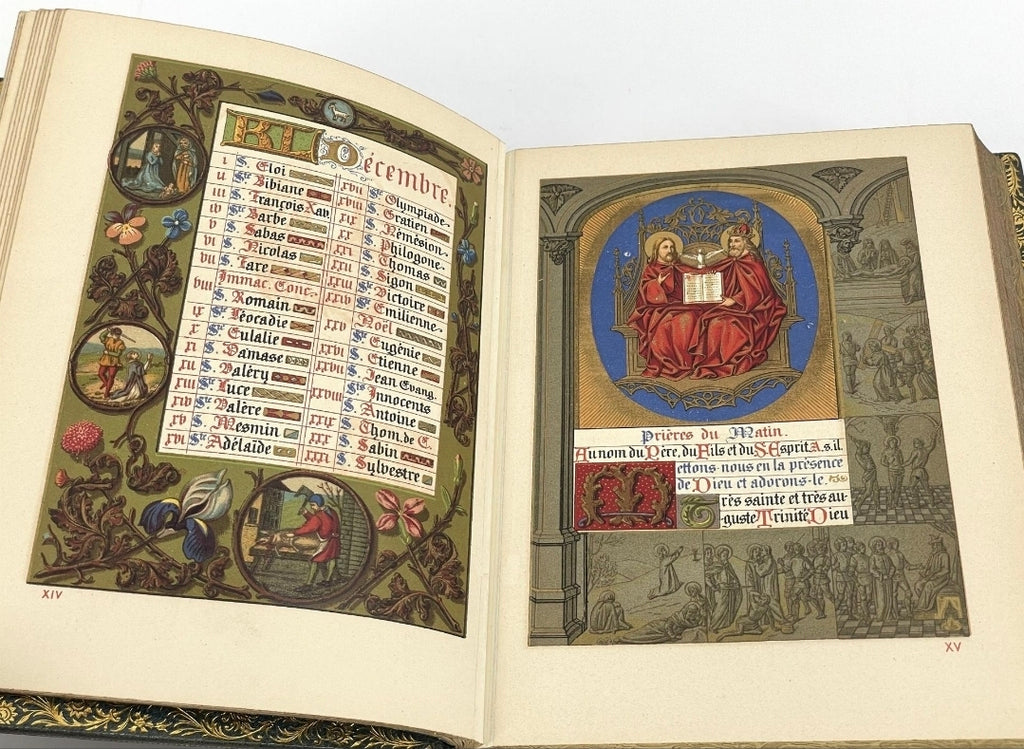 KL Décembre.
I S. Éloi
II Ste Bibiane
III S. François Xav.
IV Ste Barbe
V S. Sabas
VI S. Nicolas
VII Ste Fare
VIII Immac. Conc.
S. Romain
IX Ste Léocadie
X Ste Eulalie
XI S. Damase
XII S. Valéry
XIII Ste Luce
XIV Ste Valère
XV S. Mesmin
XVI Ste Adélaïde
XVII Ste Olympiade
XVIII S. Gratien
XIX S. Némésion
XX S. Philogone
XXI S. Thomas
XXII S. Sigon
XXIII Ste Victoire
XXIV Ste Emilienne
XXV Noël
Ste Eugénie
XXVI S. Etienne
XXVII S. Jean Evang.
XXVIII Sts Innocents
S. Antoine
S. Thom. de C.
XXX S. Sabin
XXXI S. Sylvestre
XIV
Prières du Matin.
Au nom du Père, du Fils et du S. Esprit A.s.il.
Mettons-nous en la présence
de Dieu et adorons-le.
Très sainte et très au-
guste Trinité Dieu
XV